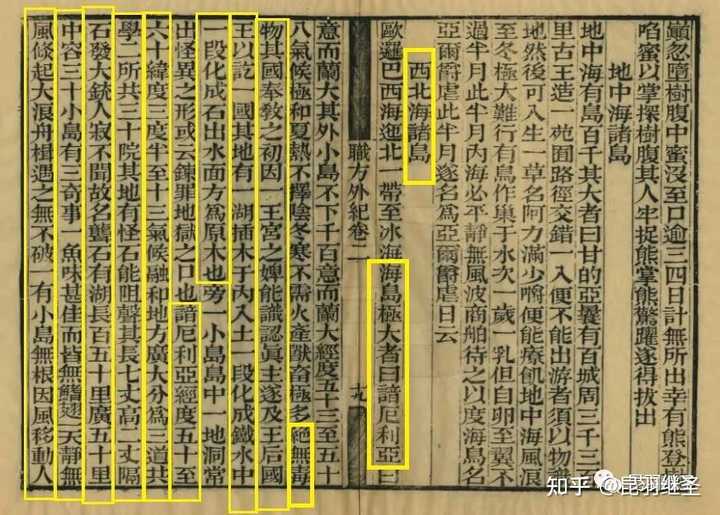 巔忽墮樹腹中蜜沒至口逾三四日計無所出幸有熊登樹
啗蜜以掌探樹腹其人牢捉熊掌熊驚躍遂得拔出
地中海諸島
地中海有島百千其大者曰甘的亞曩有百城周三千三百
里古王造一苑囿路徑交錯一入便不能出游者須以物識
地然後可入生一草名阿力滿少嚼便能療飢地中海風浪
至冬極大難行有鳥作巢于水次一歲一乳但自卵至翼不
過半月此半月內海必平靜無風波商舶待之以度海鳥名
亞爾爵虐此半月遂名為亞爾爵虐日云
西北海諸島
歐邏巴西海迤北一帶至冰海海島極大者曰諳厄利亞曰
職方外紀卷二
十九
意而蘭大其外小島不下千百意而蘭大經度五十三至五十
八氣候極和夏熱不擇陰冬寒不需火產獸畜極多絕無毒
物其國奉教之初因一王宮之婢能識認眞主遂及王后國
王以訖一國其地有一湖插木于內入土一段化成鐵水中
一段化成石出水面方為原木也旁一小島島中一地洞常
出怪異之形或云鍊罪地獄之口也諳厄利亞經度五十至
六十緯度三度半至十三氣候融和地方廣大分為三道共
學二所共三十院其地有怪石能阻聲其長七丈高二丈隔
石發大銃人寂不聞故名聾石有湖長百五十里廣五十里
中容三十小島有三奇事一魚味甚佳而皆無鰭翅一天靜無
風倏起大浪舟楫遇之無不破一有小島無根因風移動人
知乎 @昆羽继圣